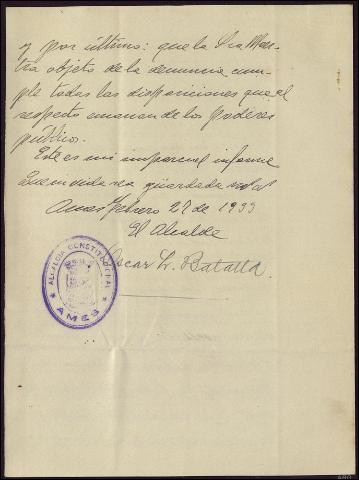 y por último: que la Sra Maes-
tra objeto de la denuncia cum-
ple todas las disposiciones que al
respecto emanan de los poderes
publicos.
Este es mi imparcial informe
Cuya vida sea guardada
Ames febrero 27 de 1933
El Alcalde
Oscar L. Batalla
ALCALDIA CONSTITUCIONAL
AMES